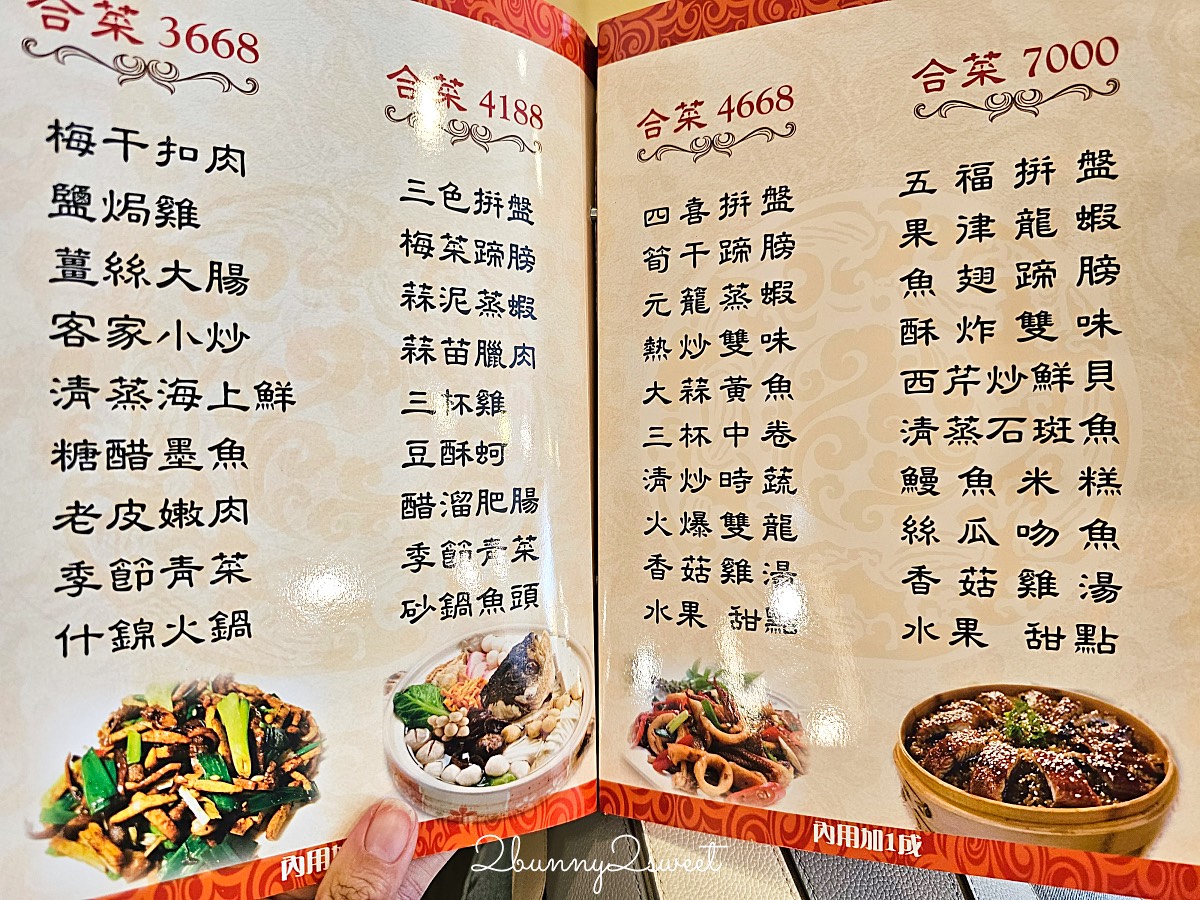 合菜 3668
梅干扣肉
鹽焗雞
薑絲大腸
客家小炒
清蒸海上鮮
糖醋墨魚
老皮嫩肉
季節青菜
什錦火鍋
內用加
合菜 4188
三色拼盤
梅菜蹄膀
蒜泥蒸蝦
蒜苗臘肉
三杯雞
豆酥蚵
醋溜肥腸
季節青菜
砂鍋魚頭
合菜 4668
四喜拼盤
筍干蹄膀
元籠蒸蝦
熱炒雙味
大蒜黃魚
三杯中卷
清炒時蔬
火爆雙龍
香菇雞湯
水果 甜點
合菜 7000
五福拼盤
果律龍蝦
魚翅蹄膀
酥炸雙味
西芹炒鮮貝
清蒸石斑魚
鰻魚米糕
絲瓜吻魚
香菇雞湯
水果 甜點
內用加1成
2bunny2sweet